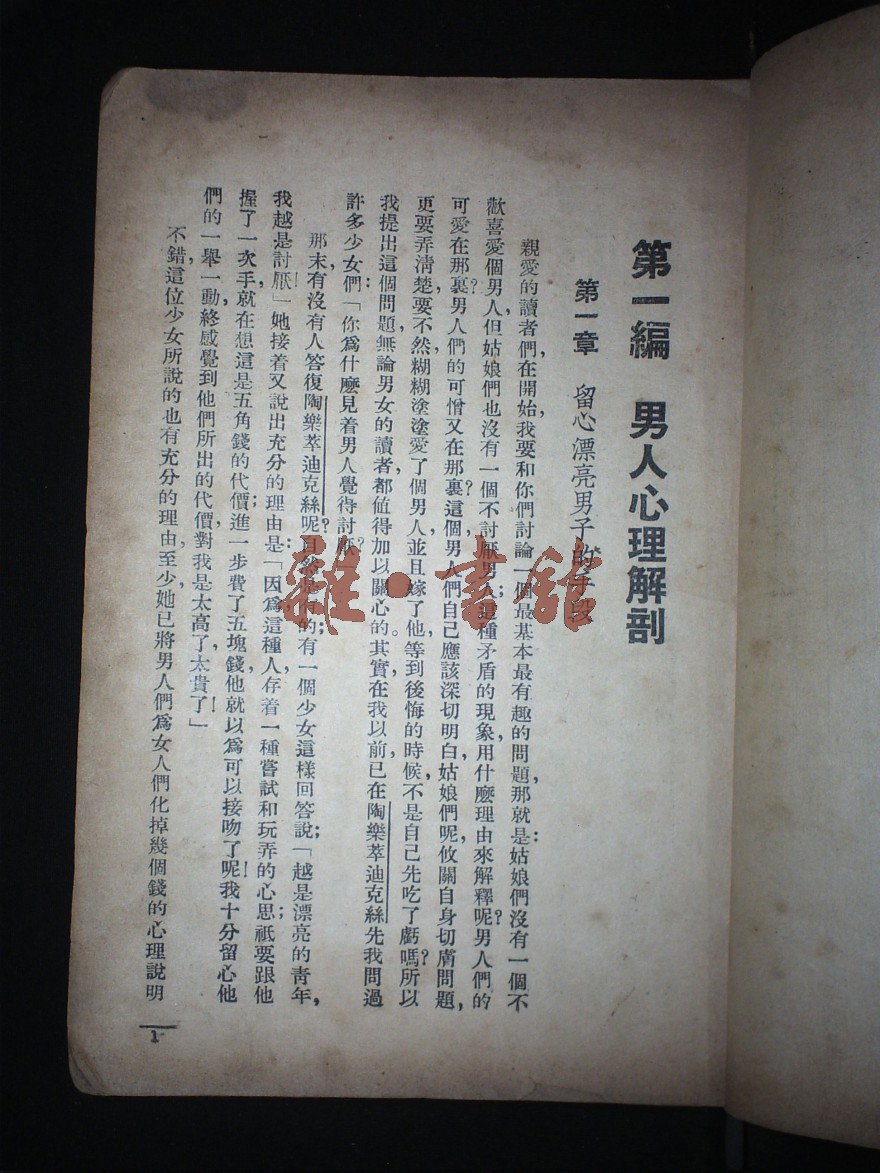 第一編　男人心理解剖
第一章　留心漂亮男子的手段
親愛的讀者們,在開始,我要和你們討論一個最基本最有趣的問題,那就是:姑娘們沒有一個不
歡喜愛個男人,但姑娘們也沒有一個不討厭男人;這種矛盾的現象,用什麼理由來解釋呢?男人們的
可愛在那裏?男人們的可憎又在那裏?這個男人們自己應該深切明白,姑娘們呢,攸關自身切膚問題,
更要弄清楚,要不然,糊糊塗塗愛了個男人,並且嫁了他,等到後悔的時候,不是自己先吃了虧嗎?所以
我提出這個問題,無論男女的讀者,都值得加以關心的。其實在我以前,已在陶樂萃迪克絲先我問過
許多少女們:「你爲什麼見着男人覺得討厭?
那末,有沒有人答復陶樂萃迪克絲呢?自然是有的;有一個少女這樣回答說;「越是漂亮的青年,
我越是討厭!」她接着又說出充分的理由是:「因爲這種人,存着一種嘗試和玩弄的心思;祇要跟他
握了一次手,就在想這是五角錢的代價;進一步費了五塊錢,他就以爲可以接吻了呢!我十分留心他
們的一舉一動,終感覺到他們所出的代價,對我是太高了,太貴了!」
不錯,這位少女所說的也有充分的理由,至少,她已將男人們爲女人們化掉幾個錢的心理說明
1
雜·書館